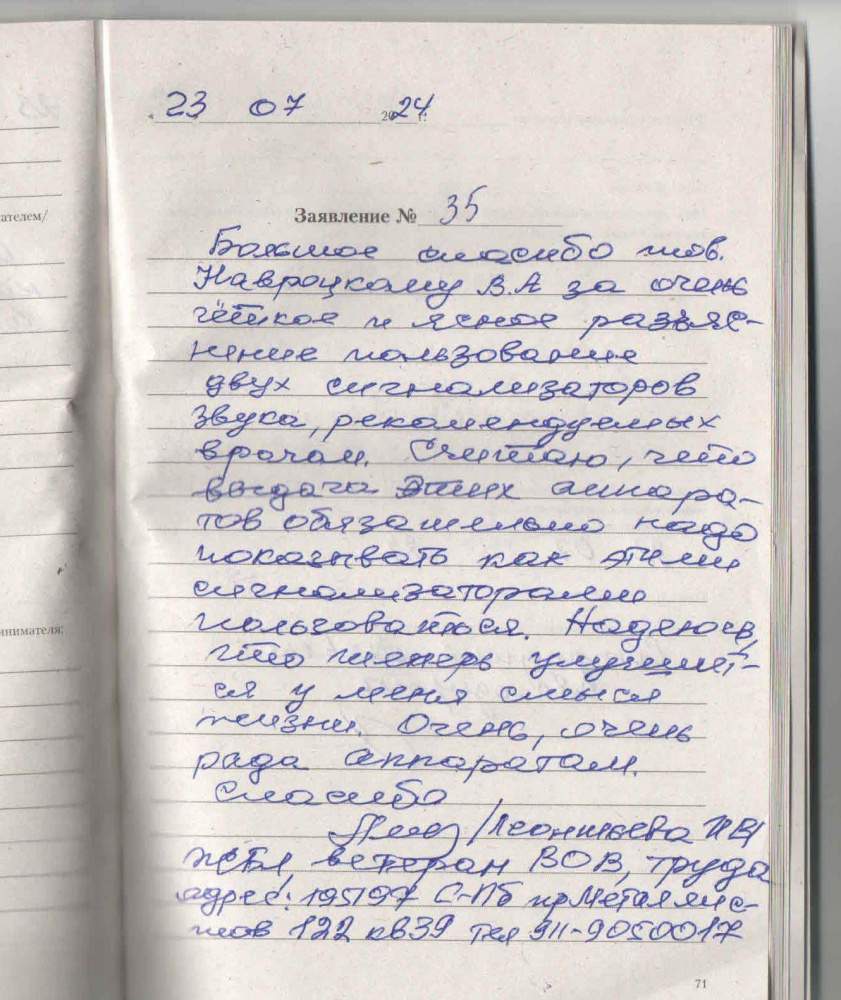 23 07 2024 г.
ателем/
Заявление № 35
Большое спасибо тов.
Навроцкому В.А за очень
чёткое и ясное разъяс-
нение пользование
двух сигнализаторов
звука, рекомендуемых
врачом. Считаю, что
выдача этих аппара-
тов обязательно надо
показывать как этими
сигнализаторами
пользоваться. Надеюсь,
что теперь улучшит-
ся у меня смысл
жизни. Очень, очень
рада аппаратам.
Спасибо
/Леонтьева
инимателя:
ЖБЛ, ветеран ВОВ, труда
адрес: 195197 С-Пб пр Металлис-
тов 122 кв 39 тел 911-9050017
71